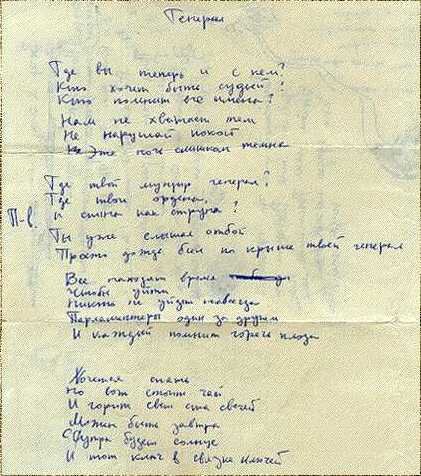 Генерал
Где вы теперь и с кем?
Кто хочет быть судьей?
Кто помнит все имена?
Нам не хватает тем
Не нарушай покой
Эта ночь слишком темна
Где твой мундир генерал?
Где твои ордена,
и спина как струна?
Ты уже слышал отбой
Просто дождь бил по крыше твоей генерал
Все находят время
Чтобы уйти
Никто не уйдет навсегда
Парламентеры один за другим
И каждый помнит горечь плода
Хочется спать
Но вот стоит чай
И горит свет ста свечей
Может быть завтра
С утра будет солнце
И тот ключ в связке ключей